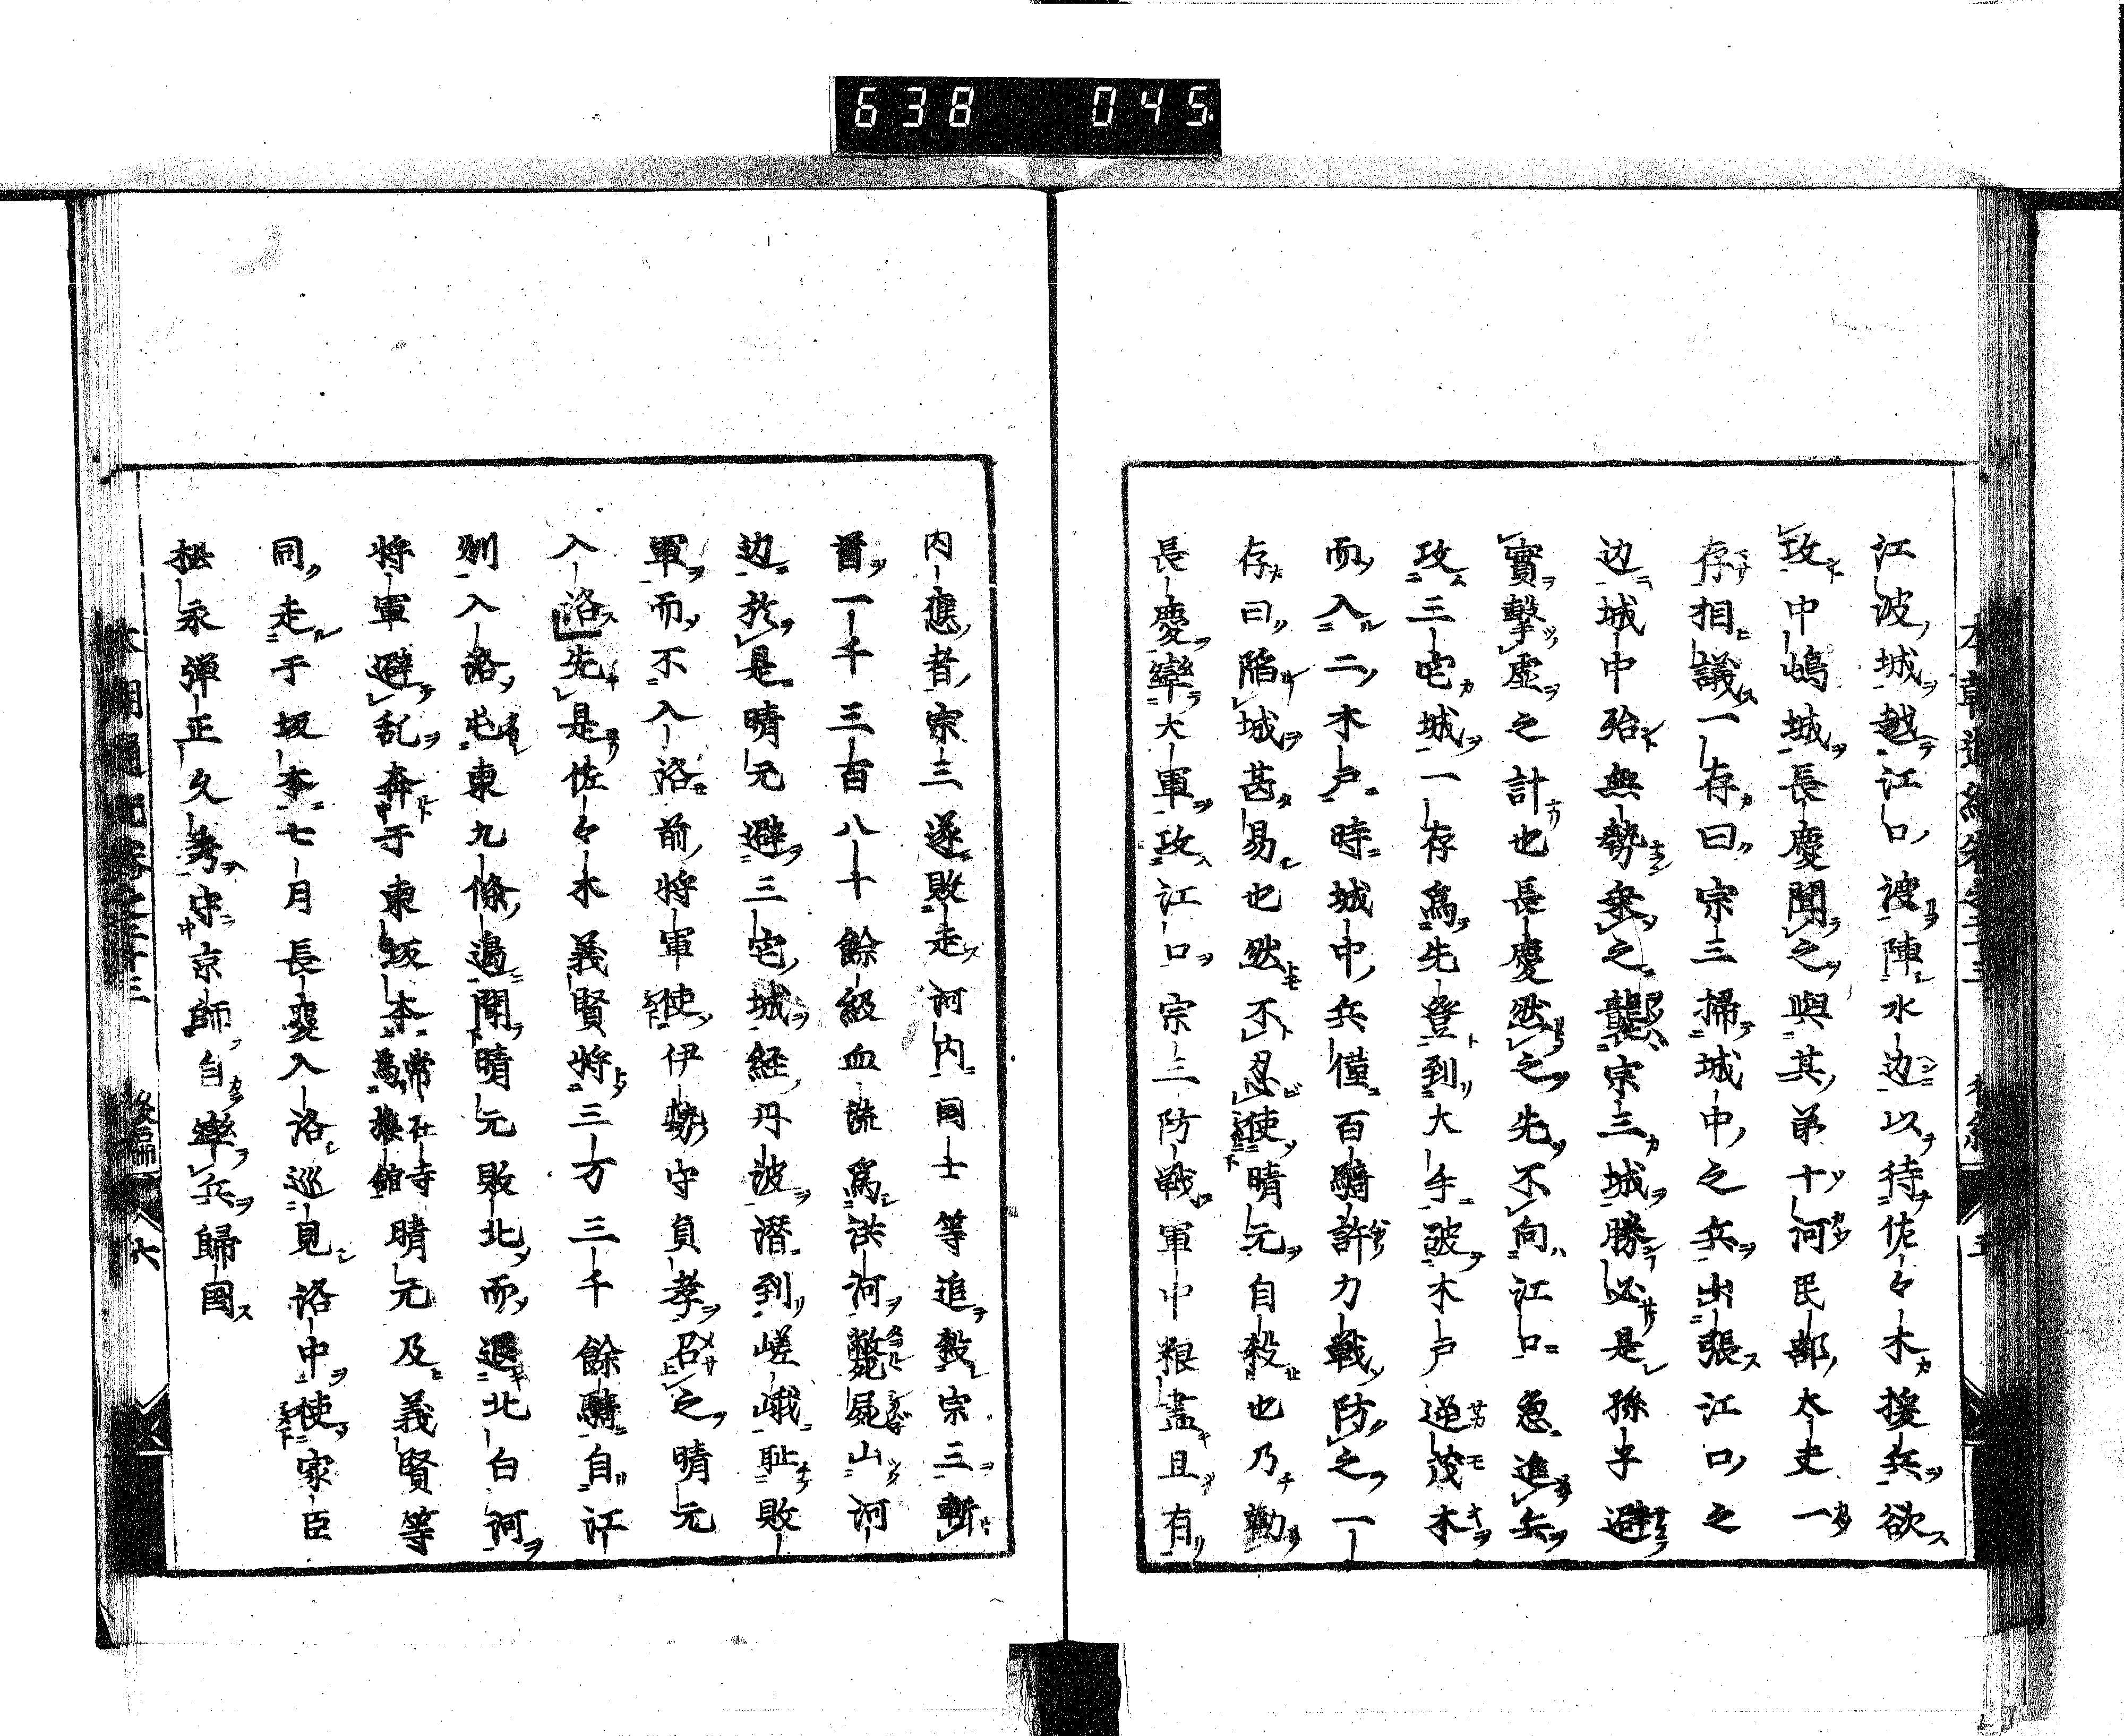 638 045
江波城越江口被陣水边以待佐々木援兵欲
攻中嶋城長慶聞之與其弟十河民部大夫一
存相議一存曰宗三掃城中之兵出張江口之
边城中殆無勢乗之襲宗三城勝必是孫子避
實擊虚之計也長慶然之先不向江口急進兵
攻三宅城一存為先登到大手破木戸逆茂木
而入二木戸時城中兵僅百騎許力戰防之一
存曰陥城甚易也然不忍使晴元自殺也乃勸
長慶率大軍攻江口宗三防戦軍中粮盡且有
内應者宗三遂敗走河内国士等追殺宗三斬
首一千三百八十餘級血流為洪河斃屍山河
边於是晴元避三宅城経丹波潜到嵯峨耻敗
軍而不入洛前将軍使伊勢守貞孝召之晴元
入洛先是佐々木義賢将三万三千餘騎自江
州入洛屯東九條邉聞晴元敗北而退北白河
将軍避乱奔于東坂本常社寺為旅館晴元及義賢等
同走于坂本七月長慶入洛巡見洛中使家臣
松永弾正久秀守京師自率兵歸国
本朝通紀巻之十三 後編 六